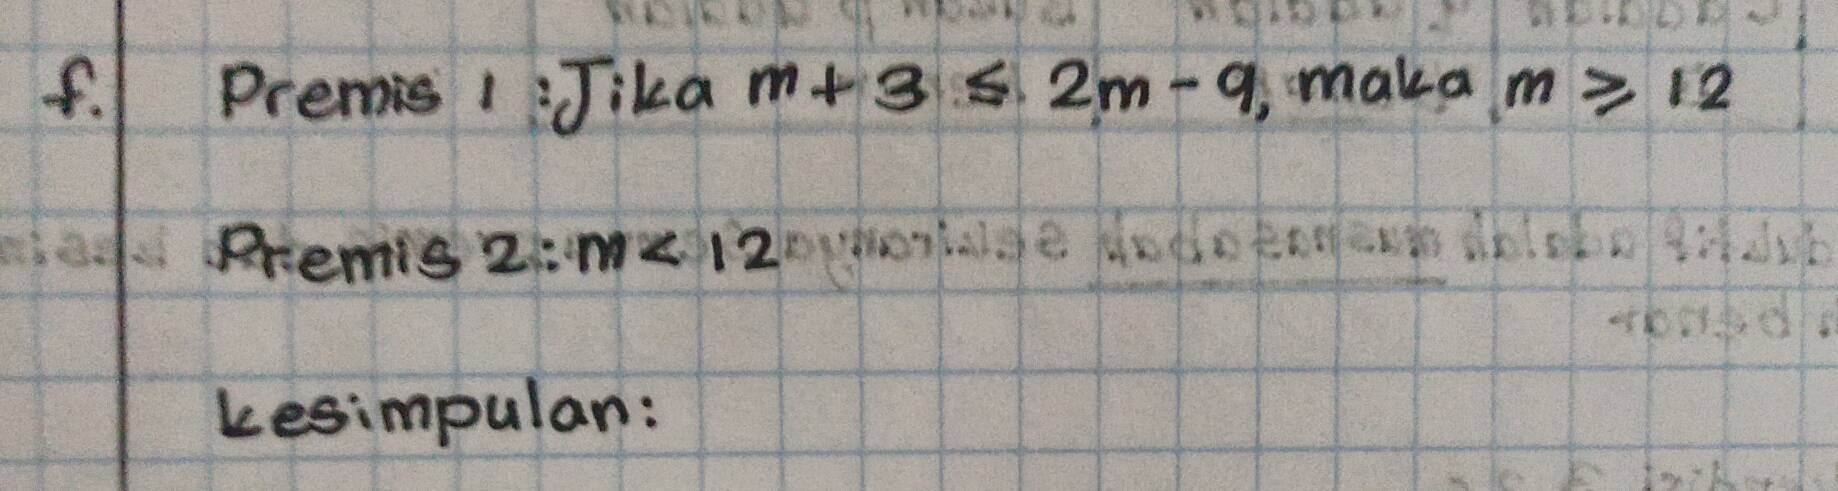 f. Premis 1 : Jika m + 3 ≤ 2m - 9, maka m ≥ 12
Premis 2 : m < 12
kesimpulan: